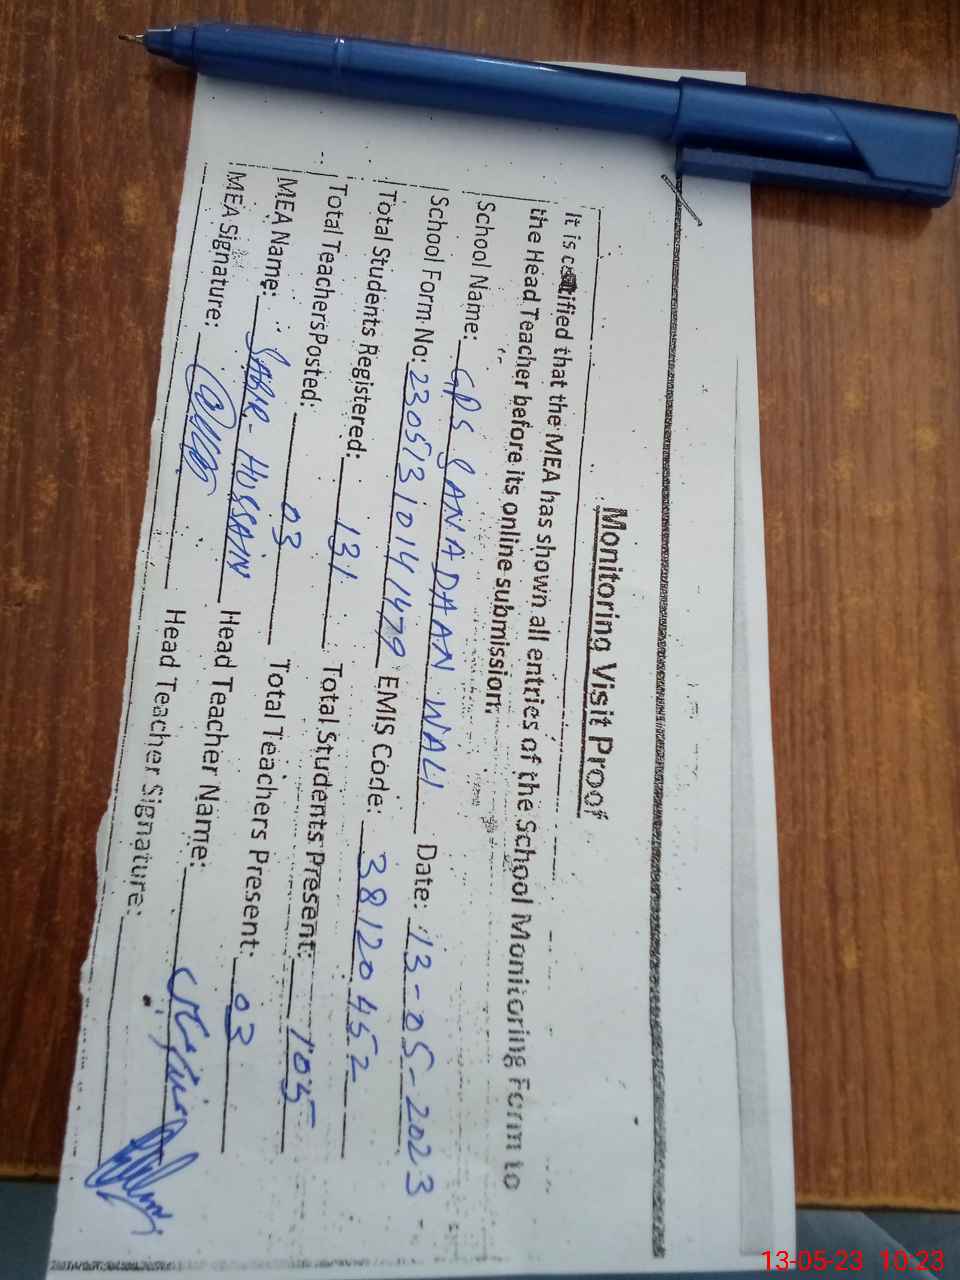 Monitoring Visit Proof
It is certified that the MEA has shown all entries of the School Monitoring Form to
the Head Teacher before its online submission.
School Name: GPS SANADAAN WALI Date: 13-05-2023
School Form No: 23051310141479 EMIS Code: 38120452
Total Students Registered: 131 Total Students Present: 105
Total Teachers Posted: 03 Total Teachers Present: 03
MEA Name: SABIR-HUSSAIN Head Teacher Name:
MEA Signature: Head Teacher Signature:
13-05-23 10:23